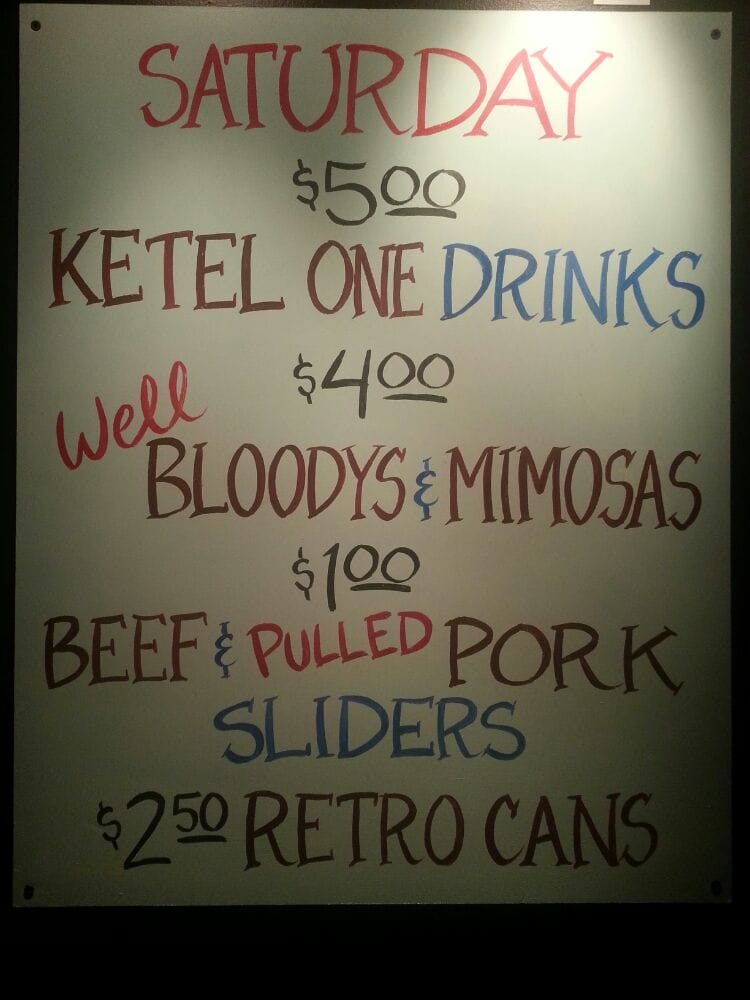 SATURDAY
$500
KETEL ONE DRINKS
$400
Well
BLOODYS & MIMOSAS
$100
BEEF & PULLED PORK
SLIDERS
$250 RETRO CANS